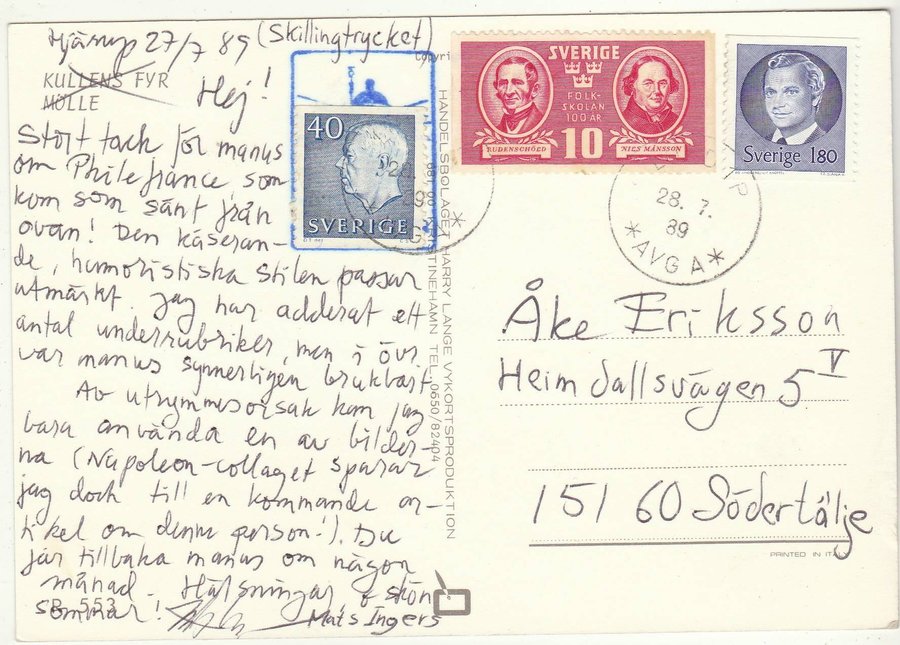 Hjärup 27/7 89 (Skillingtrycket)
KULLENS FYR
MÖLLE
Hej!
Stort tack för manus
om Philefrance som
kom som sänt från
ovan! Den kåseran-
de, humoristiska stilen passar
utmärkt. Jag har adderat ett
antal underrubriker, men i öv
var manus synnerligen brukbart
Av utrymmesorsak kan jag
bara använda en av bilder-
na (Napoleon-collaget sparar
jag doch till en kommande ar-
tikel om denne person!). Du
får tillbaka manus om någon
månad. Hälsningar & skön
sommar!
Mats Ingers
SB 553
HANDELSBOLAGET HARRY LANGE VYKORTSPRODUKTION
KRISTINEHAMN TEL. 0650/82404
40
SVERIGE
SVERIGE
FOLK-
SKOLAN
100 ÅR
RUDENSCHÖLD
10
NILS MÅNSSON
Sverige 180
28. 7.
89
*AVGA*
Åke Eriksson
Heimdallsvägen 5 V
151 60 Södertälje
PRINTED IN ITAL